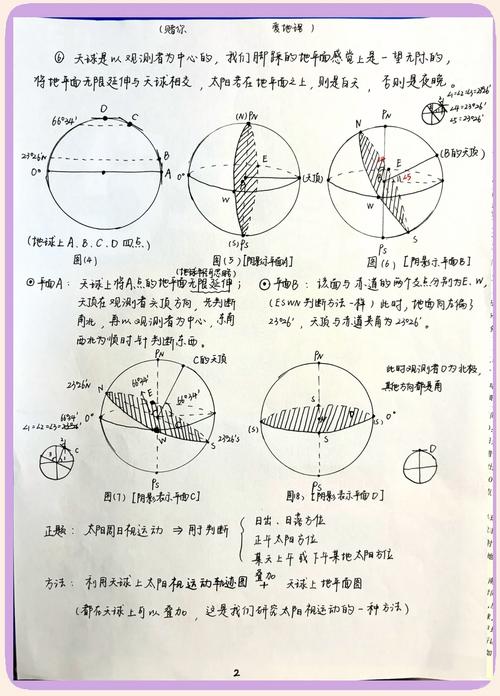 (赠你 爱地课)
⑥ 天球是以观测者为中心的，我们脚踩的地平面感觉上是一望无际的，
将地平面无限延伸与天球相交，太阳若在地平面之上，则是白天，否则是夜晚。
∠1=∠2=∠3=23°26′
∠4=23°26′
∠5=23°26′
D
66°34′ C
23°26′N B
0° A
(地球上A、B、C、D四点)
图(4)
(N) PN
E
0° (天顶)
W
(S) PS
图(5) [阴影示平面A]
N PN
(B的天顶)
E
∠5
W
PS S
图(6) [阴影示平面B]
⊙平面A: 天球上将A点的地平面无限延伸；
天顶在观测者头顶方向，先判断
南北，再以观测者为中心，东南
西北为顺时针判断东西。
⊙平面B: 该面与赤道的两个交点分别为E、W，
(ESWN判断方法一样)此时，地面向左偏了
23°26′，天顶与赤道夹角为23°26′。
PN C的天顶
23°26′N N 66°34′
E 66°34′
66°34′ 0°
∠1=∠2=∠3=23°26′
W
S 23°26′S
C
PS
图(7) [阴影表示平面C]
PN
S
(S) (S) 0°
S
PS
图(8) [阴影表示平面D]
此时观测者D为北极，
其他方向都是南
D
正题: 太阳周日视运动 ⇒ 用于判断
日出、日落方位
正午太阳方位
某天上午或下午某地太阳方位
方法: 利用天球上太阳视运动轨迹图 叠加+ 天球上地平面图
(都在天球上可以叠加，这是我们研究太阳视运动的一种方法)
2